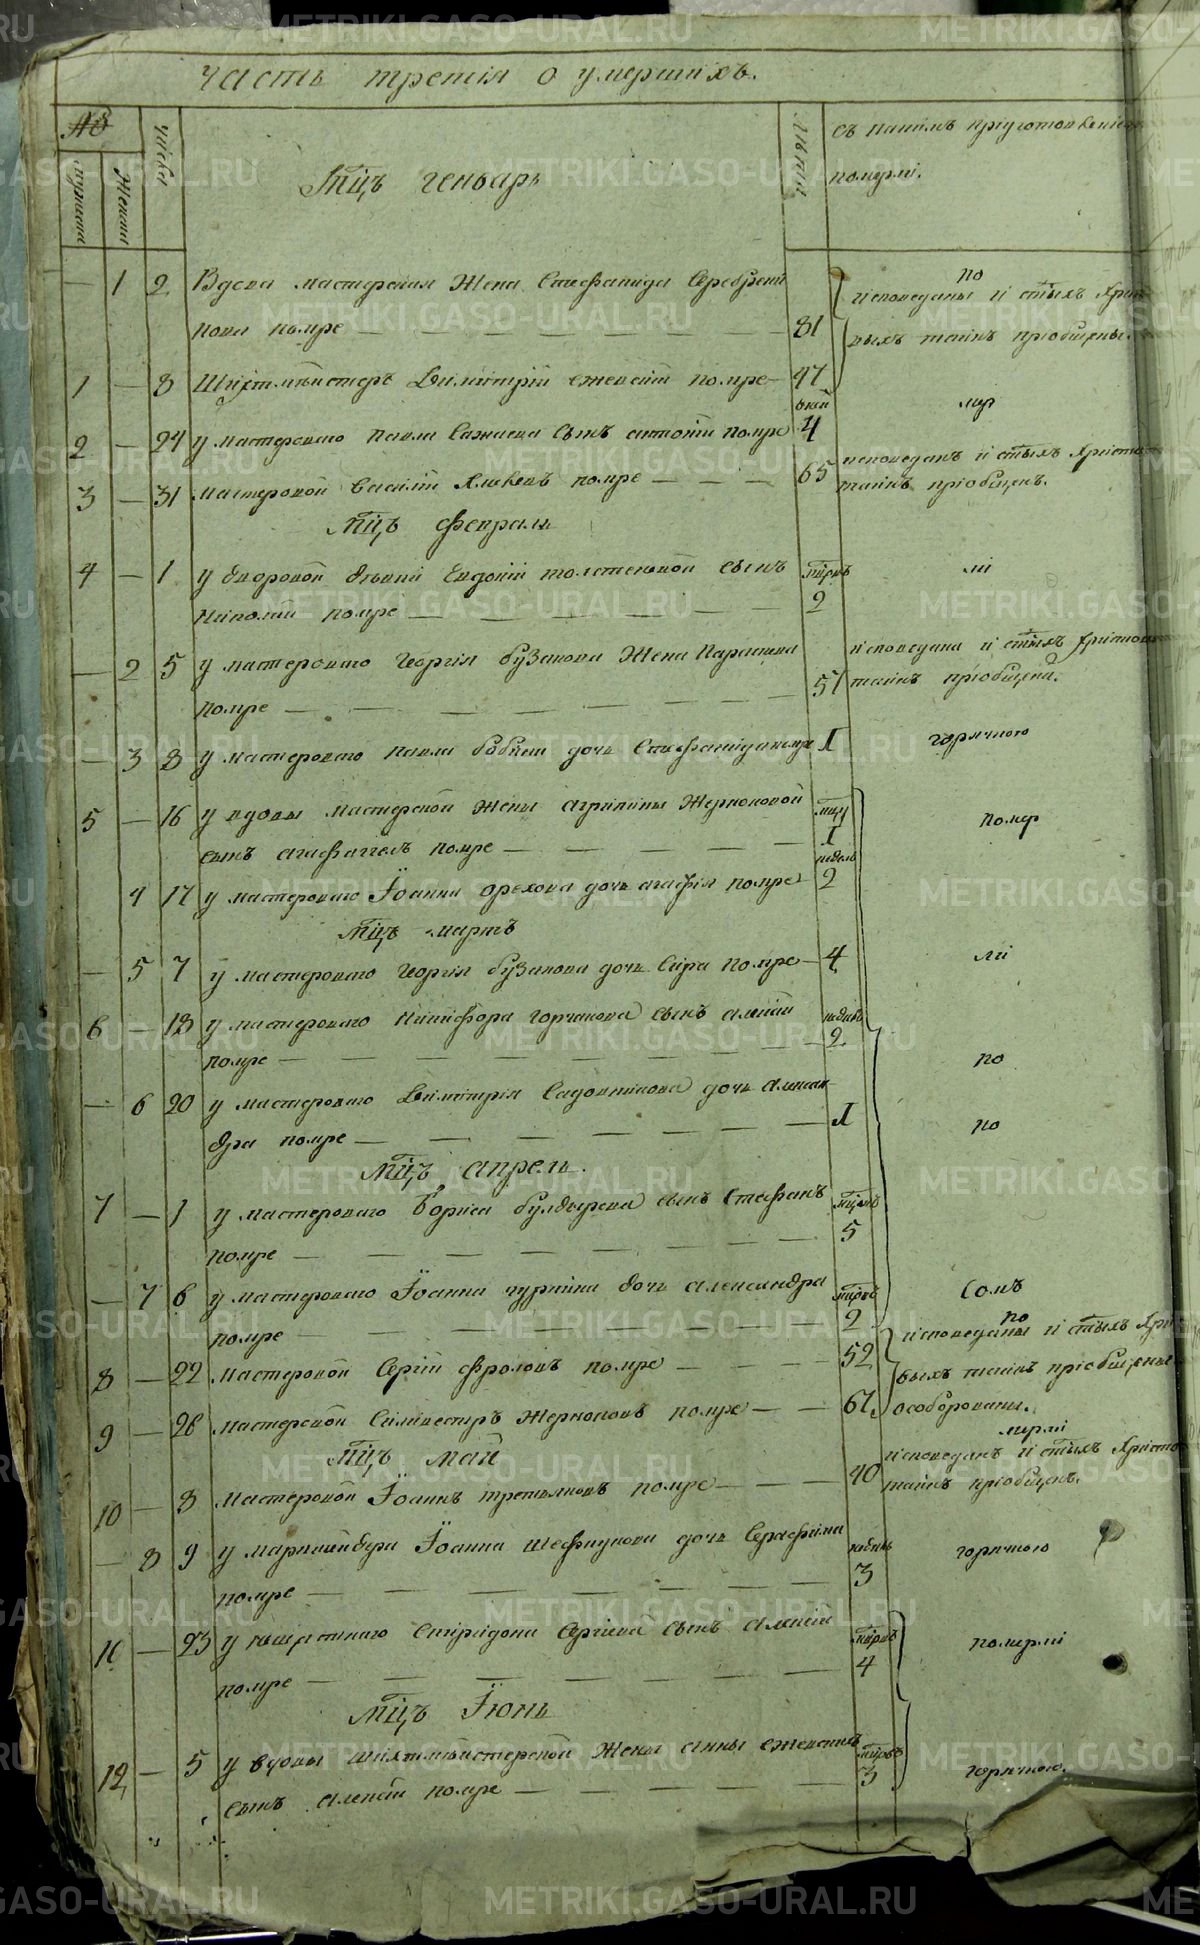 часть третія о умершихъ.
№
мужеска
Женска
число
Мцъ генварь
лѣта
съ какимъ приуготовленіемъ
померли.
— 1 2 Вдова мастерская Жена Стефанида Серебрени
кова помре — 81
по
исповеданы и стыхъ Христо
выхъ таинъ приобщены.
1 — 8 Шихтмейстеръ Димитрій ежевскій помре — 47
2 — 24 у мастероваго Павла Сажаева Сынъ антоній помре дней 4
мла
3 — 31 мастеровой Василій помре — 65
исповеданъ и стыхъ Христо
таинъ приобщенъ.
Мцъ февраль
4 — 1 у дворовой девки Евдокіи толстиковой сынъ
Николай помре — мцовъ 2
— 2 5 у мастероваго Георгія бузанова Жена Параскева
помре — 51
исповедана и стыхъ Христовыхъ
таинъ приобщена.
— 3 8 у мастероваго Павла дочь Стефанида помре 1
горячкою
5 — 16 у вдовы мастерской Жены агрипины Жерноковой
сынъ помре — мцу 1
помер
4 17 у мастероваго Іоанна орехова дочь агафія помре — недель 2
Мцъ мартъ
— 5 7 у мастероваго Георгія бузанова дочь Сира помре — 4
ли
6 — 18 у мастероваго Никифора горчакова сынъ алексій
помре — недель 2
по
— 6 20 у мастероваго Димитрія Садовникова дочь алексан
дра помре — 1
по
Мцъ апрель.
7 — 1 у мастероваго Бориса булдырева сынъ Стефанъ
помре — мцовъ 5
— 7 6 у мастероваго Іоанна дочь александра
помре — мцовъ 2
8 — 22 мастеровой Сергій фроловъ помре — 52
по
исповеданы и стыхъ Хри
выхъ таинъ приобщены
особорованы.
9 — 26 мастерской Силивестръ Жерноковъ помре — 67
Мцъ май
мерли
10 — 8 Мастеровой Іоаннъ третьяковъ помре — 40
исповеданъ и стыхъ Христо
таинъ приобщенъ.
— 8 9 у Іоанна дочь Серафима
помре — недель 3
горячкою
11 — 23 у Спиридона Сергіева сынъ алексій
помре — мцовъ 4
померли
Мцъ Іюнь
12 — 5 у вдовы шихтмейстерской Жены анны ежевскихъ
сынъ алексій помре — мцовъ 3
горячкою.
METRIKI.GASO-URAL.RU